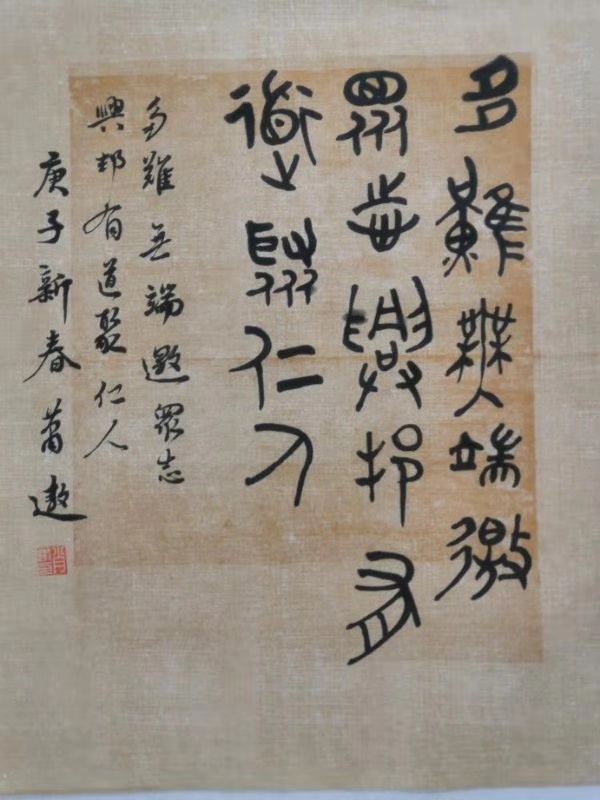 多難無端邀
眾志興邦有
道聚仁人
多難無端邀眾志
興邦有道聚仁人
庚子新春 萧遨